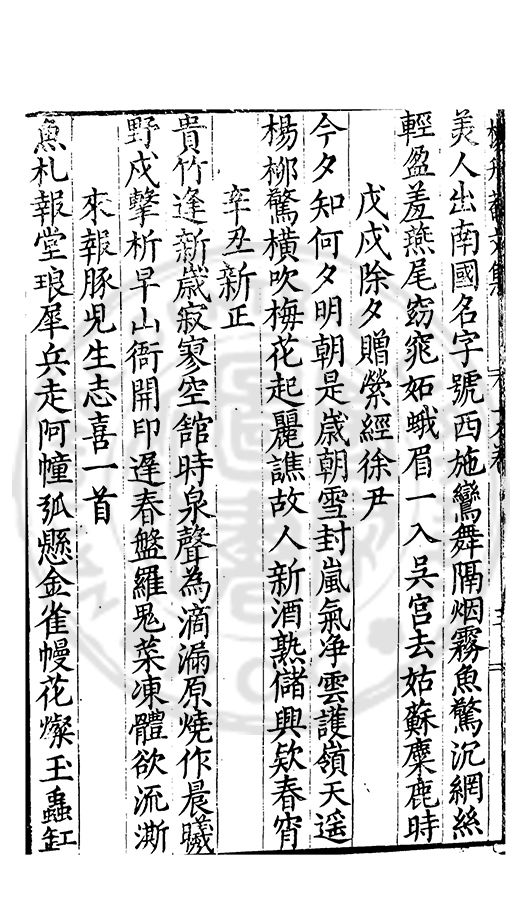 美人出南國名字號西施鸞舞隔烟霧魚驚沉網絲
輕盈羞燕尾窈窕妬蛾眉一入吳宫去姑蘇麋鹿時
戊戌除夕贈滎經徐尹
今夕知何夕明朝是歲朝雪封嵐氣净雲護嶺天遥
楊栁驚橫吹梅花起麗譙故人新酒熟儲興欵春宵
辛丑新正
貴竹逢新歲寂寥空舘時泉聲為滴漏原燒作晨曦
野戍擊析早山衙開印遲春盤羅鬼菜凍體欲流澌
來報豚児生志喜一首
魚札報堂琅犀兵走阿幢弧懸金雀幔花燦玉蟲缸